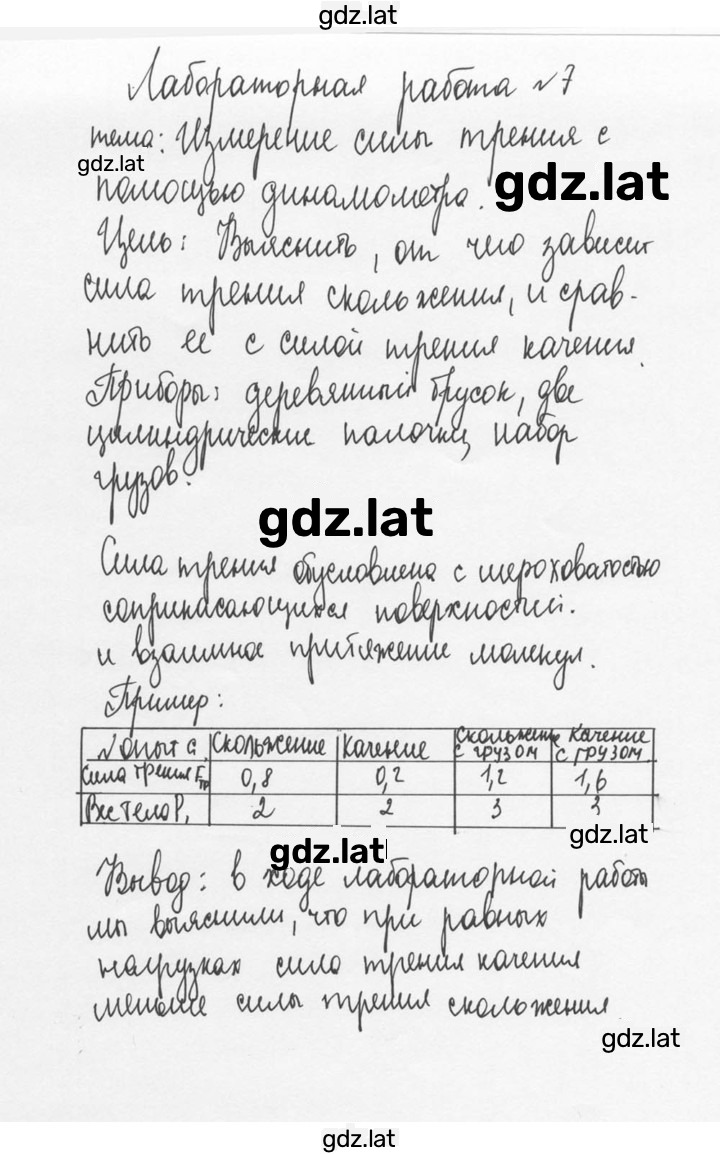 gdz.lat
Лабораторная работа №7
тема: Измерение силы трения с
gdz.lat
помощью динамометра.
gdz.lat
Цель: Выяснить, от чего зависит
сила трения скольжения, и срав-
нить ее с силой трения качения.
Приборы: деревянный брусок, две
цилиндрические палочки, набор
грузов.
gdz.lat
Сила трения обусловлена с шероховатостью
соприкасающихся поверхностей.
и взаимное притяжение молекул.
Пример:
№ опыта Скольжение Качение Скольжение с грузом Качение с грузом
Сила трения Fтр 0,8 0,2 1,2 1,6
Вес тела P, 2 2 3 3
gdz.lat
gdz.lat
Вывод: в ходе лабораторной работы
мы выяснили, что при равных
нагрузках сила трения качения
меньше силы трения скольжения
gdz.lat
gdz.lat